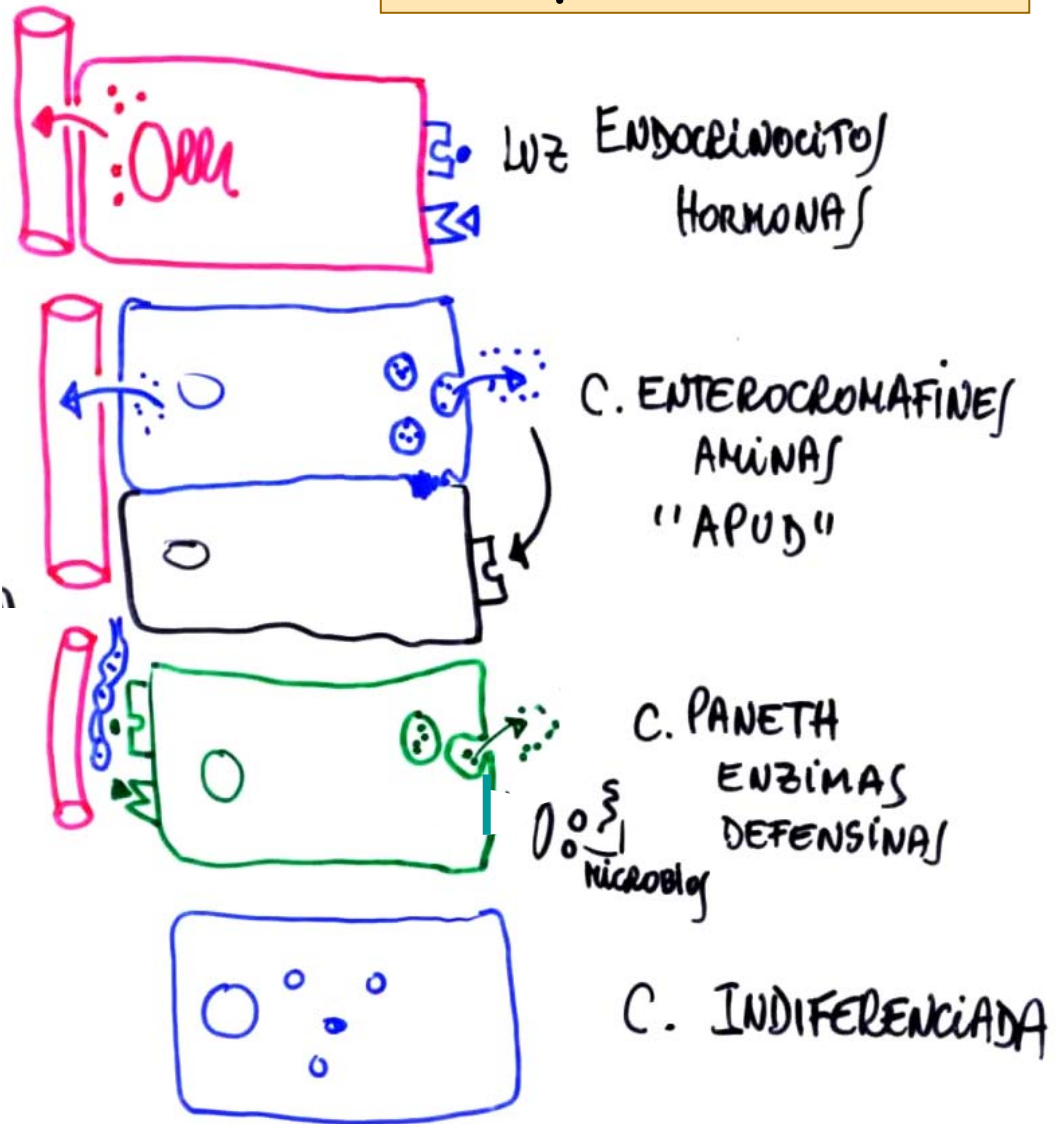 LUZ ENDOCRINOCITOS
HORMONAS
C. ENTEROCROMAFINES
AMINAS
"APUD"
C. PANETH
ENZIMAS
DEFENSINAS
MICROBIOS
C. INDIFERENCIADA